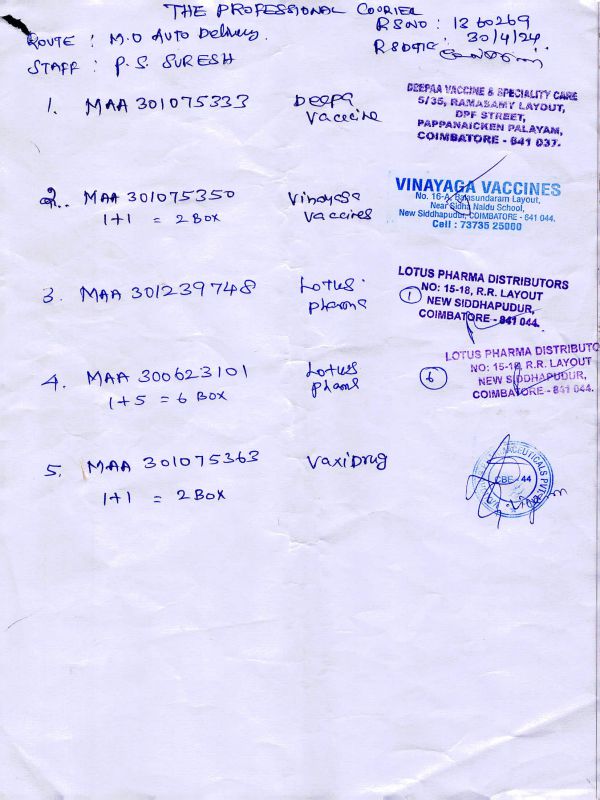 THE PROFESSIONAL COURIER
RSNO : 1360269
ROUTE : M.O Auto Delivery.
RSDATE : 30/4/24
STAFF : P. S. SURESH
1. MAA 301075333 Deepa vaccine
DEEPAA VACCINE & SPECIALITY CARE
5/35, RAMASAMY LAYOUT,
DPF STREET,
PAPPANAICKEN PALAYAM,
COIMBATORE - 641 037.
2. MAA 301075350 Vinayaga vaccines
1+1 = 2 Box
VINAYAGA VACCINES
No. 16-A, Balasundaram Layout,
Near Sidha Naidu School,
New Siddhapudur, COIMBATORE - 641 044.
Cell : 73735 25000
3. MAA 301239748 Lotus pharma
LOTUS PHARMA DISTRIBUTORS
1 NO: 15-18, R.R. LAYOUT
NEW SIDDHAPUDUR,
COIMBATORE - 641 044.
4. MAA 300623101 Lotus pharma
1+5 = 6 Box
LOTUS PHARMA DISTRIBUTO
6 NO: 15-18, R.R. LAYOUT
NEW SIDDHAPUDUR,
COIMBATORE - 641 044.
5. MAA 301075363 Vaxidrug
1+1 = 2 Box
CBE - 44